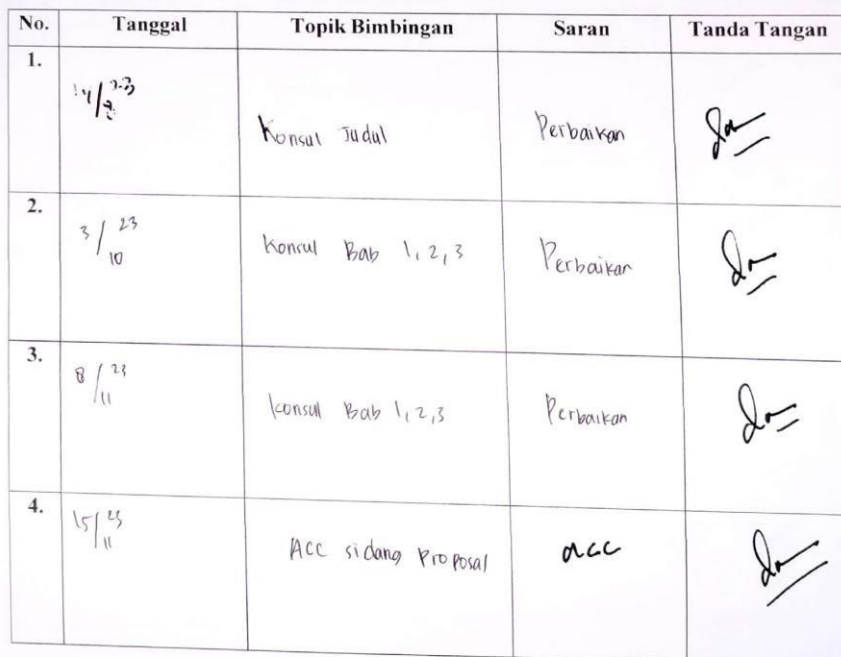 No. Tanggal Topik Bimbingan Saran Tanda Tangan
1. 23 Konsul Judul Perbaikan
2. 3/10 23 Konsul Bab 1, 2, 3 Perbaikan
3. 8/11 23 Konsul Bab 1, 2, 3 Perbaikan
4. 15/11 23 ACC sidang Proposal acc